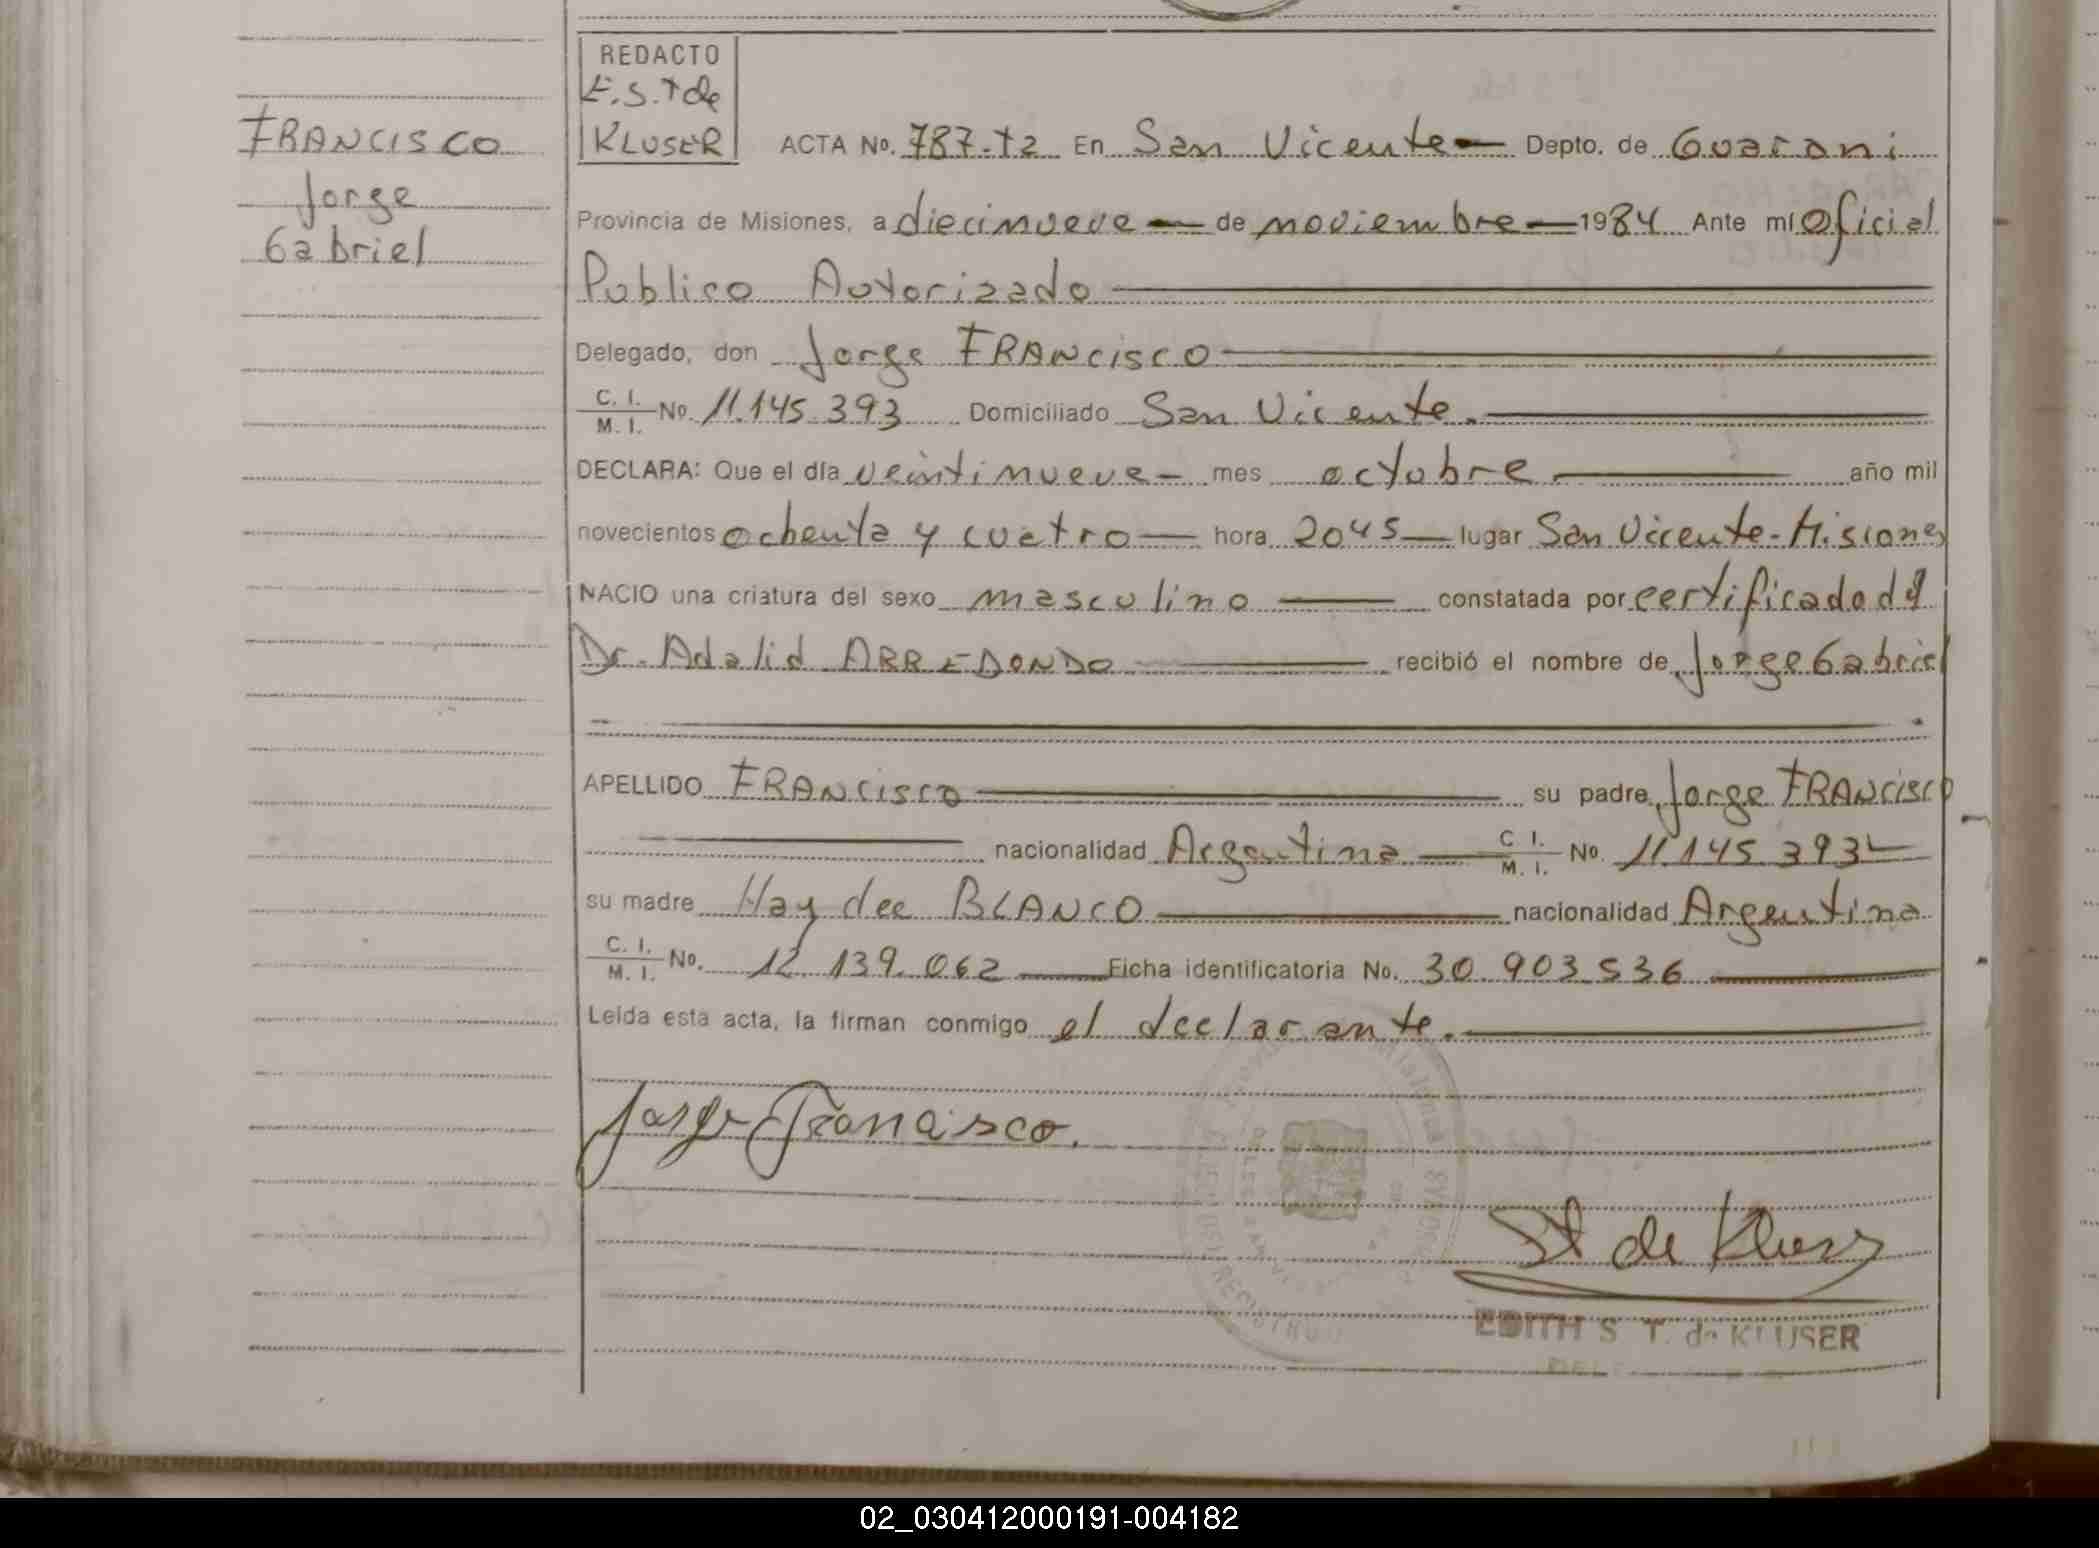 FRANCISCO
Jorge
Gabriel
REDACTO
E.S.T de
KLUSER
ACTA No. 787-t2 En San Vicente Depto. de Guarani
Provincia de Misiones, a diecinueve de noviembre 1984 Ante mí Oficial
Publico Autorizado
Delegado, don Jorge FRANCISCO
C. I.
M. I. No. 11.145.393 Domiciliado San Vicente.
DECLARA: Que el día veintinueve mes octubre año mil
novecientos ochenta y cuatro hora 2045 lugar San Vicente-Misiones
NACIO una criatura del sexo masculino constatada por certificado del
Dr. Adalid ARREDONDO recibió el nombre de Jorge Gabriel
APELLIDO FRANCISCO su padre Jorge FRANCISCO
nacionalidad Argentina C. I. M. I. No. 11.145.393
su madre Haydee BLANCO nacionalidad Argentina
C. I. M. I. No. 12.139.062 Ficha identificatoria No. 30.903.536
Leída esta acta, la firman conmigo el declarante.
Jorge Francisco.
ST de Kluser
EDITH S. T. de KLUSER
02_030412000191-004182